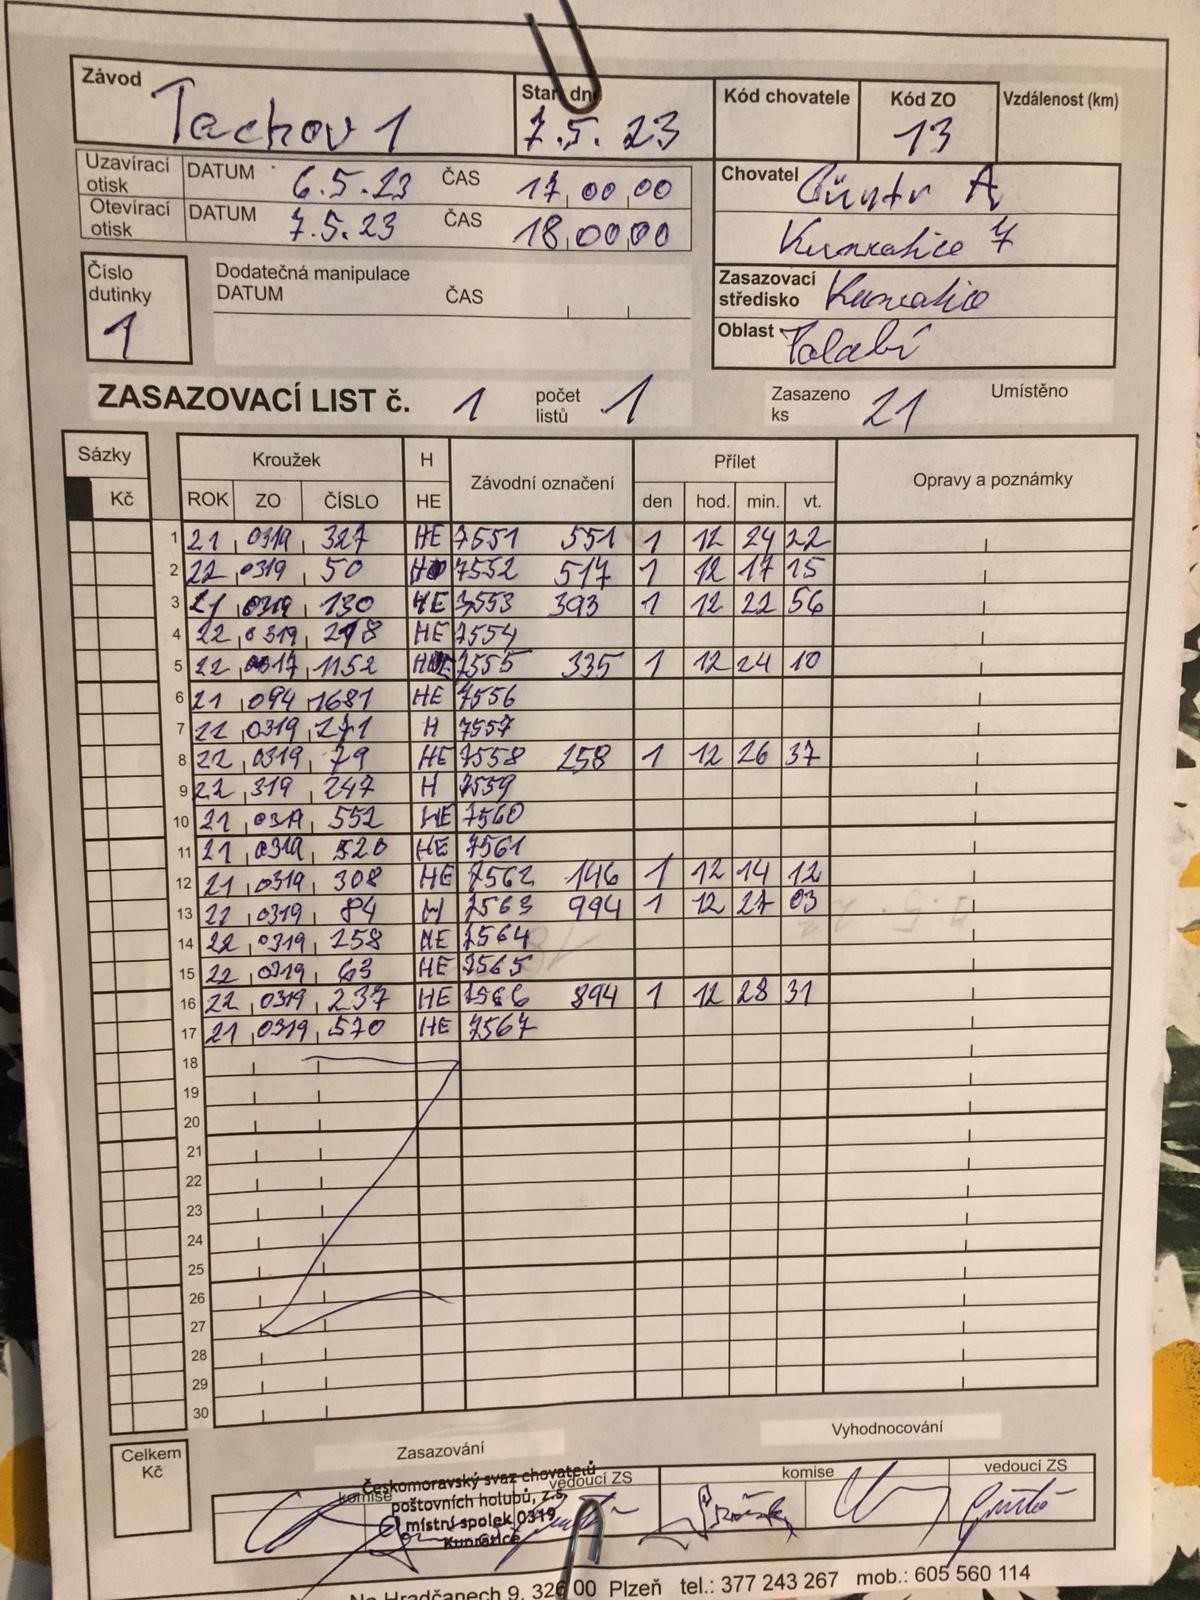 Závod Tachov 1 Start dne 7.5.23 Kód chovatele Kód ZO 13 Vzdálenost (km)
Uzavírací otisk DATUM 6.5.23 ČAS 17 00 00
Otevírací otisk DATUM 7.5.23 ČAS 18 00 00
Chovatel A
Kunratice 7
Číslo dutinky 1
Dodatečná manipulace
DATUM ČAS
Zasazovací středisko Kunratice
Oblast Polabí
ZASAZOVACÍ LIST č. 1 počet listů 1 Zasazeno ks 21 Umístěno
Sázky Kroužek H Závodní označení Přílet Opravy a poznámky
Kč ROK ZO ČÍSLO HE den hod. min. vt.
1 21 0319 327 HE 7551 551 1 12 24 22
2 22 0319 50 7552 517 1 12 17 15
3 21 0319 130 HE 7553 393 1 12 22 56
4 22 0319 HE 7554
5 22 1152 7555 335 1 12 24 10
6 21 094 1681 HE 7556
7 22 0319 271 H 7557
8 22 0319 79 HE 7558 258 1 12 26 37
9 22 319 247 H 7559
10 21 552 HE 7560
11 21 0319 520 HE 7561
12 21 0319 308 HE 7562 146 1 12 14 12
13 22 0319 84 H 7563 994 1 12 27 03
14 22 0319 258 HE 7564
15 22 0319 63 HE 7565
16 22 0319 237 HE 7566 894 1 12 28 31
17 21 0319 570 HE 7567
18
19
20
21
22
23
24
25
26
27
28
29
30
Celkem Kč
Zasazování Vyhodnocování
komise vedoucí ZS komise vedoucí ZS
Českomoravský svaz chovatelů
poštovních holubů, z.s.
místní spolek 0319
Kunratice
Na Hradčanech 9, 326 00 Plzeň tel.: 377 243 267 mob.: 605 560 114